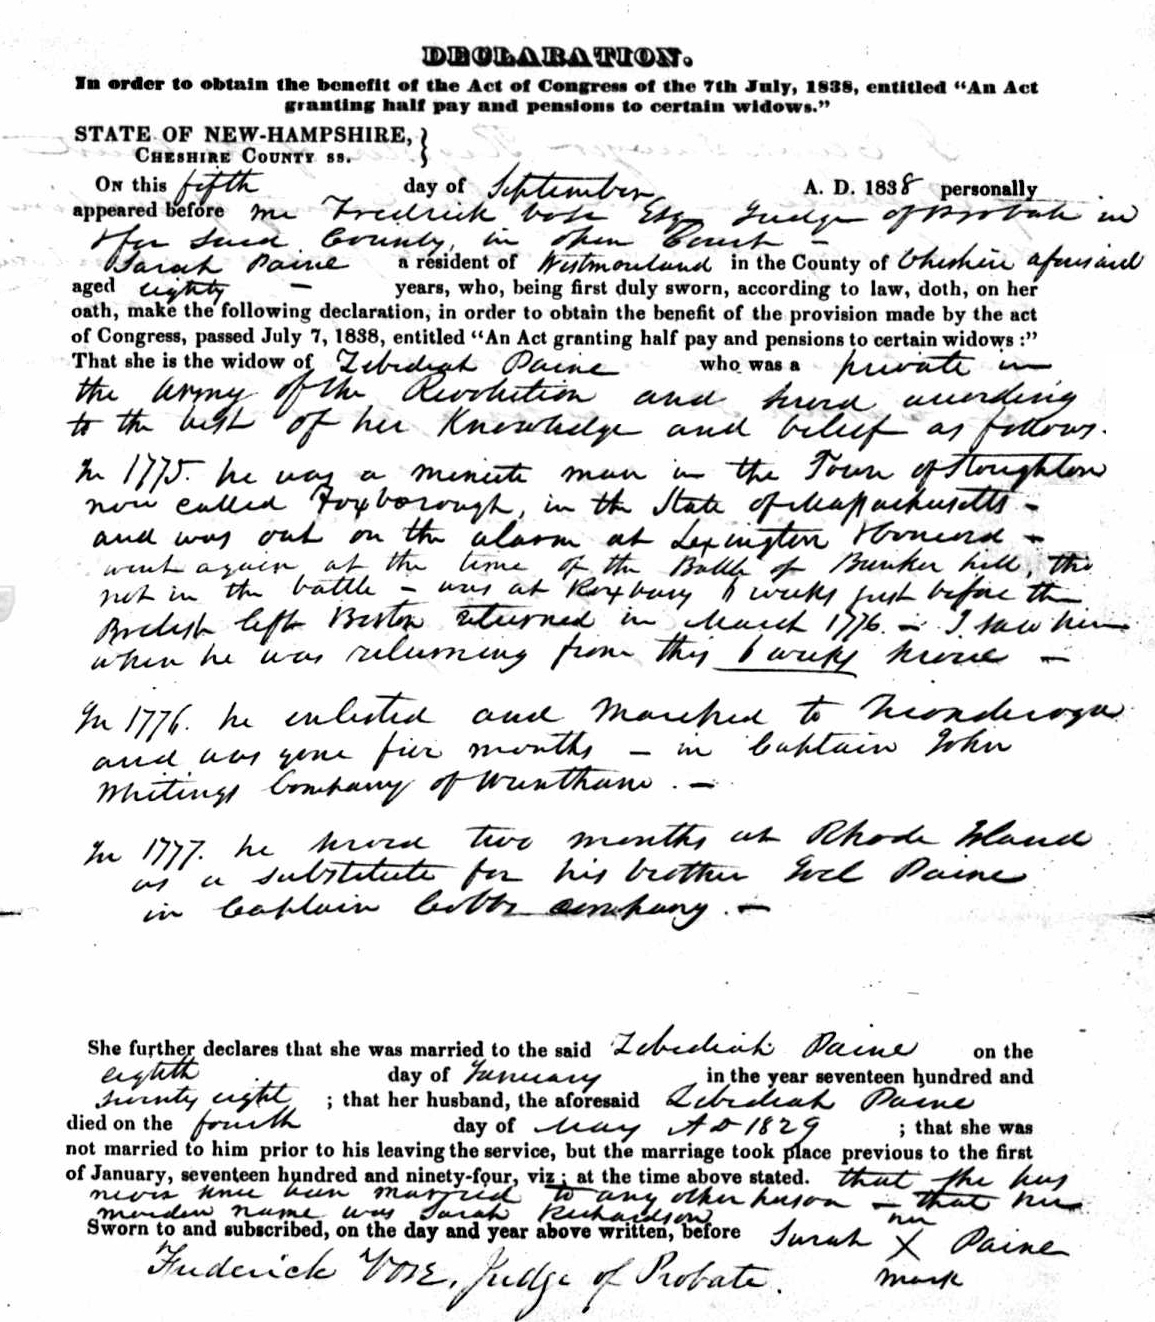 DECLARATION.
In order to obtain the benefit of the Act of Congress of the 7th July, 1838, entitled "An Act
granting half pay and pensions to certain widows."
STATE OF NEW-HAMPSHIRE, }
CHESHIRE COUNTY ss. }
ON this fifth day of September A. D. 1838 personally
appeared before me Fredrick Vose Esqr Judge of Probate in
& for said County, in open Court –
Sarah Paine a resident of Westmoreland in the County of Cheshire aforesaid
aged eighty – years, who, being first duly sworn, according to law, doth, on her
oath, make the following declaration, in order to obtain the benefit of the provision made by the act
of Congress, passed July 7, 1838, entitled "An Act granting half pay and pensions to certain widows:"
That she is the widow of Zebediah Paine who was a private in
the army of the Revolution and served according
to the best of her Knowledge and belief as follows.
In 1775. he was a minute man in the Town of Stoughton
now called Foxborough, in the State of Massachusetts –
and was out on the alarm at Lexington & Concord –
went again at the time of the Battle of Bunker hill, tho
not in the battle – was at Roxbury 6 weeks just before the
British left Boston returned in March 1776. – I saw him
when he was returning from this 6 weeks service –
In 1776. he enlisted and Marched to Ticonderoga
and was gone five months – in Captain John
Whitings Company of Wrentham. –
In 1777. he served two months at Rhode Island
as a substitute for his brother Joel Paine
in Captain Cobbs company. –
She further declares that she was married to the said Zebediah Paine on the
eighth day of January in the year seventeen hundred and
seventy eight ; that her husband, the aforesaid Zebediah Paine
died on the fourth day of May A D 1829 ; that she was
not married to him prior to his leaving the service, but the marriage took place previous to the first
of January, seventeen hundred and ninety-four, viz; at the time above stated. that she has
never since been married to any other person – that her
maiden name was Sarah Richardson
Sworn to and subscribed, on the day and year above written, before
her
Sarah X Paine
mark
Frederick Vose, Judge of Probate.